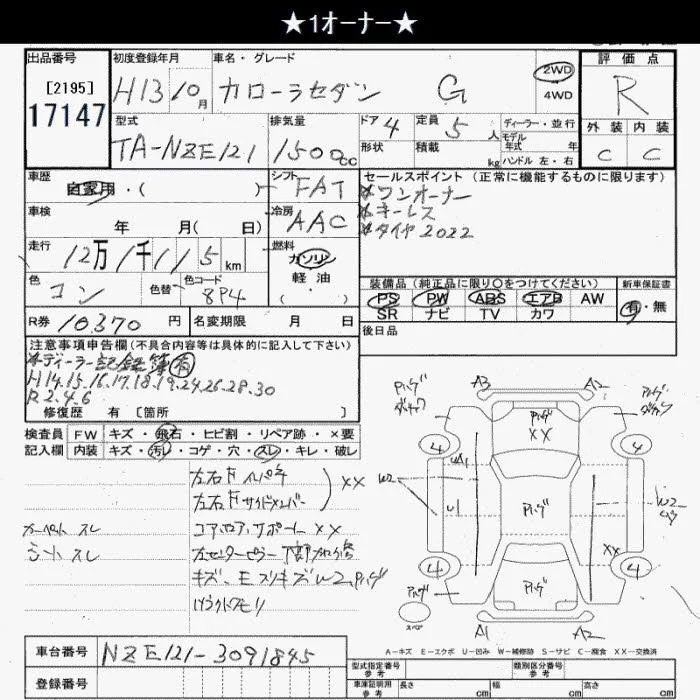 ★1オーナー★
出品番号
[2195]
17147
初度登録年月
H13 10月
車名・グレード
カローラセダン G
2WD
4WD
評価点
R
外装 内装
C C
型式
TA-NZE121
排気量
1500cc
ドア 4
形状
定員 5人
積載 kg
ディーラー・並行
モデル年式 年
ハンドル 左・右
車歴
自家用・( )
シフト FAT
冷房 AAC
セールスポイント(正常に機能するものに限ります)
*ワンオーナー
*キーレス
*タイヤ2022
車検 年 月( 日)
走行 12万1千115km
燃料
ガソリン
軽油
( ・ )
色 コン
色替
色コード 8P4
装備品(純正品に限り○をつけてください)
PS PW ABS エアB AW
SR ナビ TV カワ
新車保証書
有・無
R券 10,370円
名変期限 月 日
後日品
注意事項申告欄(不具合内容等は具体的に記入して下さい)
*ディーラー記録簿有
H14.15.16.17.18.19.24.26.28.30
R2.4.6
修復歴 有[箇所 ]
検査員記入欄
FW キズ・飛石・ヒビ割・リペア跡・×要
内装 キズ・汚レ・コゲ・穴・スレ・キレ・破レ
カーペット スレ
シート スレ
左右Fインパネ
左右Fサイドメンバー
XX
コアロアサポート XX
キズ、エクボ
A3 A2
XX
UA1
U1
W2
W2
XX
4 4
4 4
A1 A2
スペア
A-キズ E-エクボ U-凹み W-補修跡 S-サビ C-腐食 XX-交換済
車台番号 NZE121-3091845
登録番号
型式指定番号 参考
類別区分番号 参考
車庫証明用 参考 長さ cm 幅 cm 高さ cm